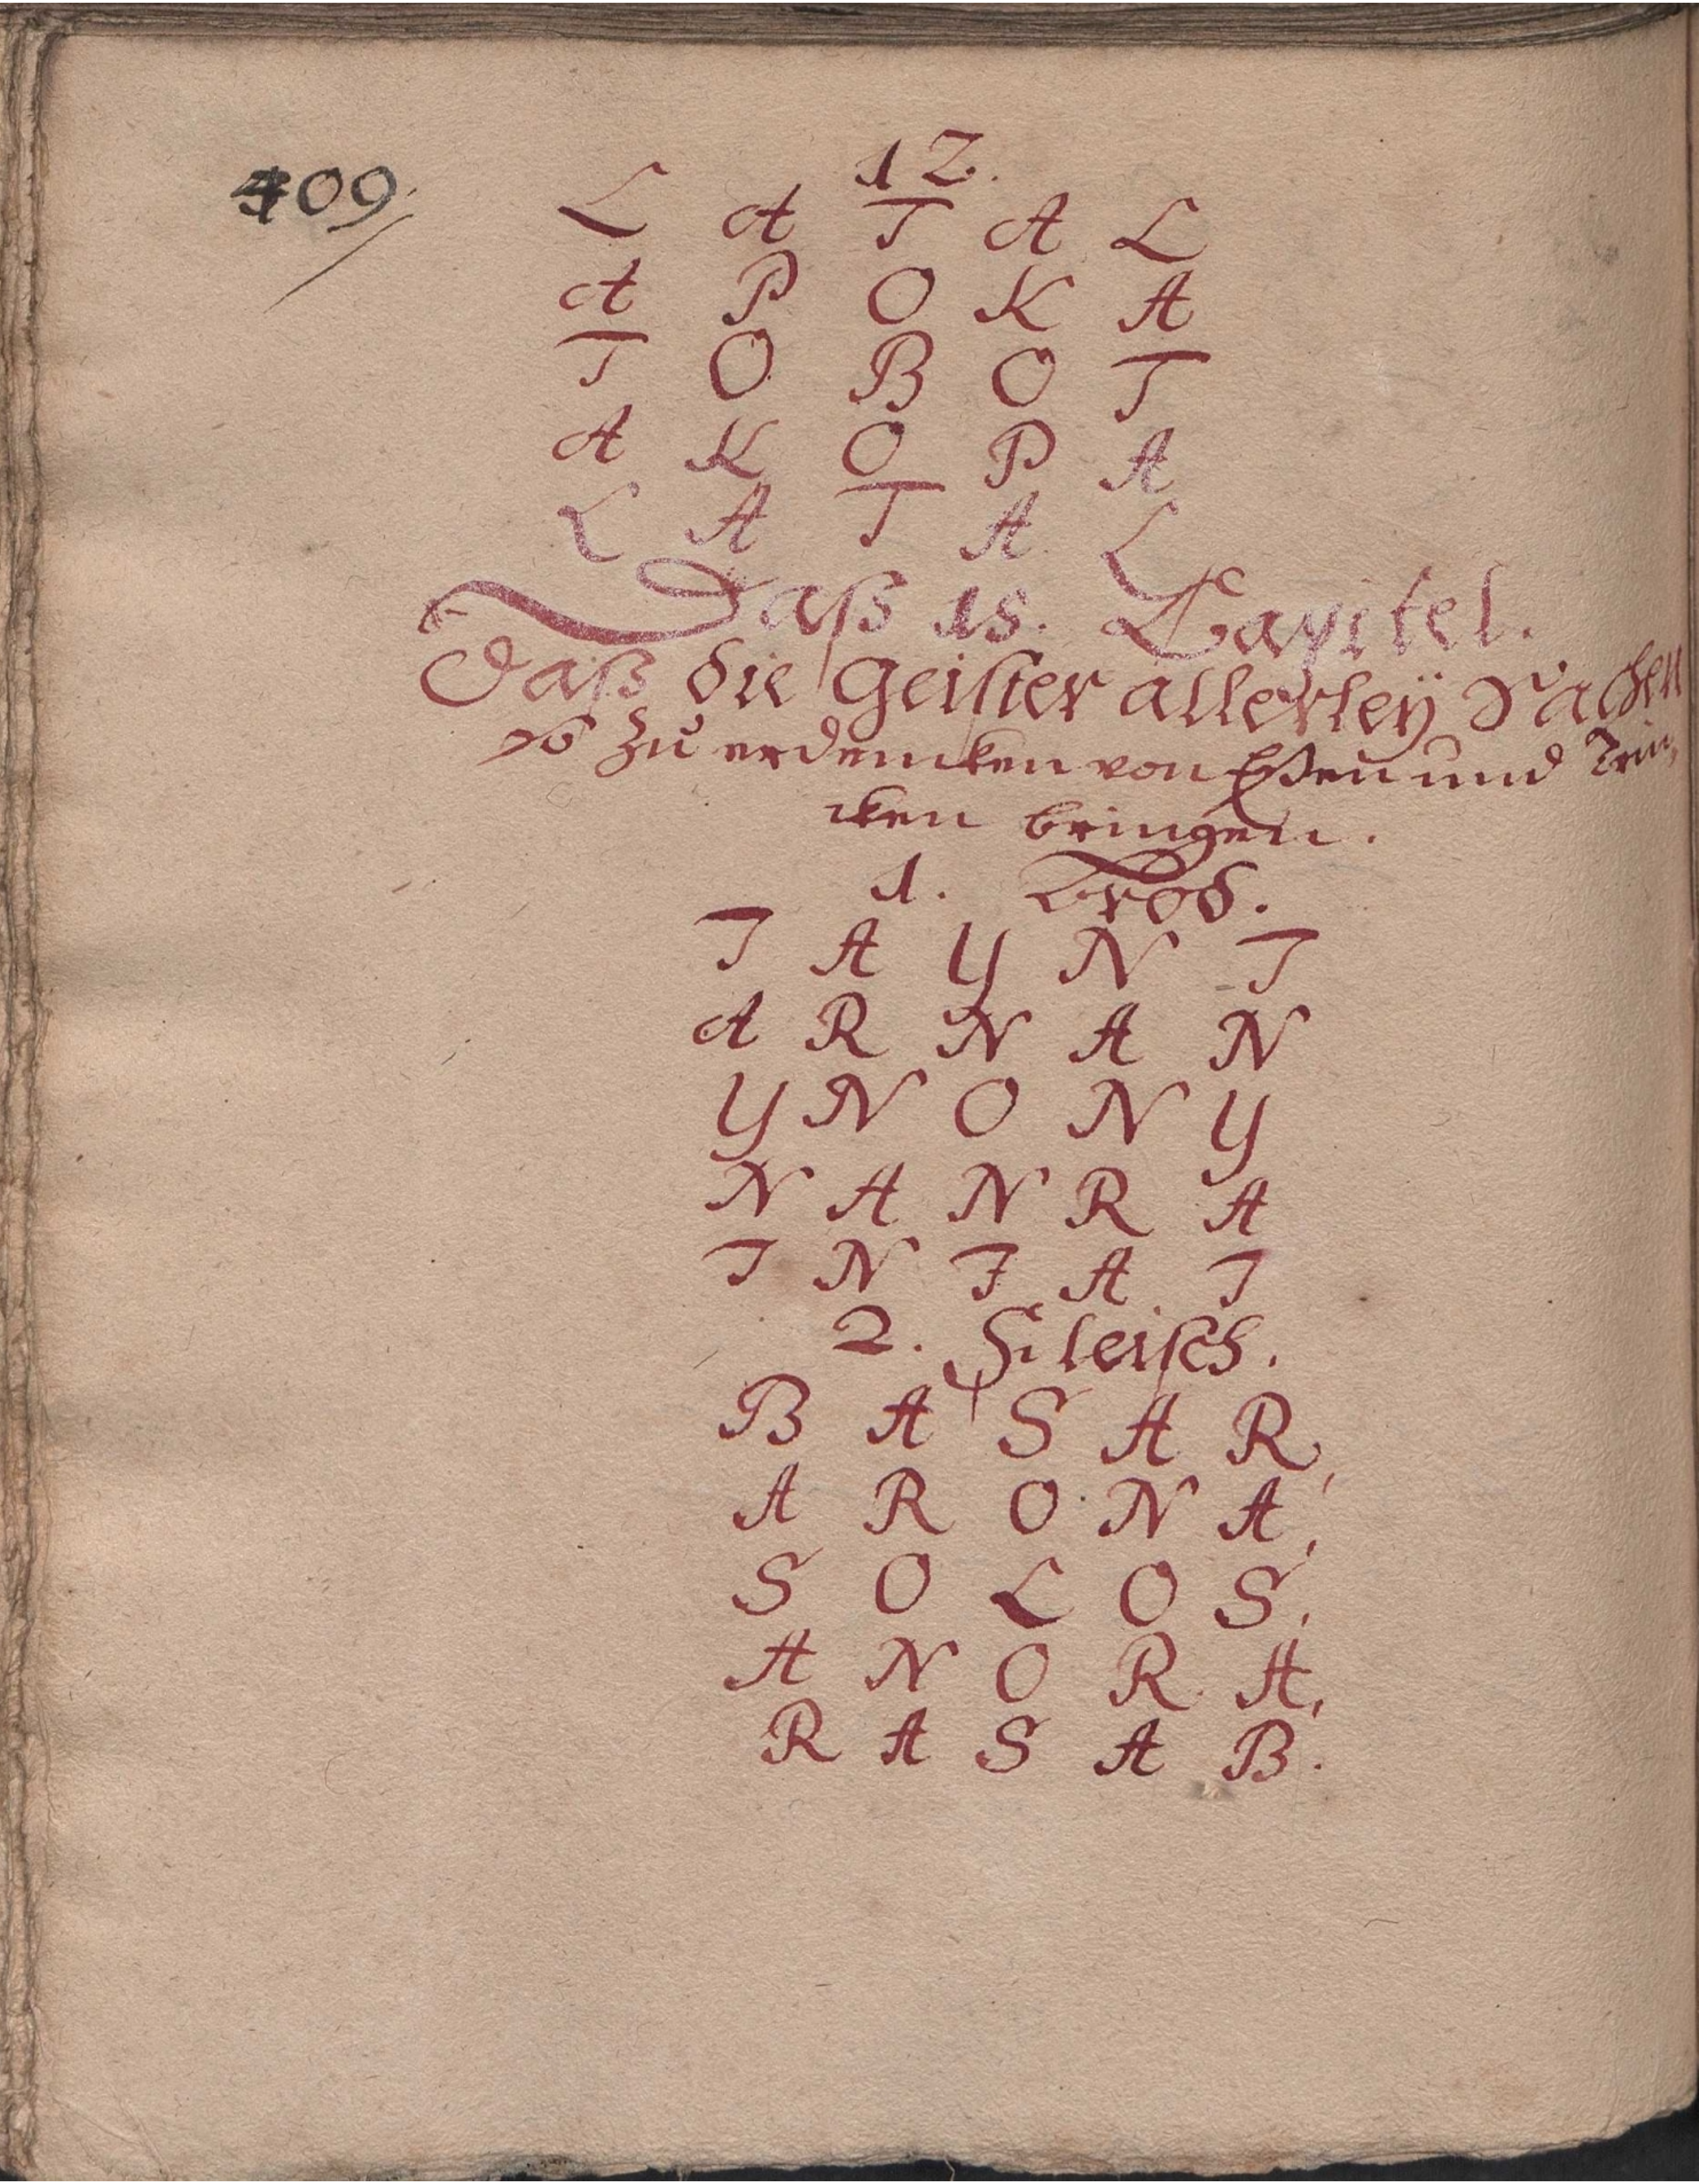 409
12.
L A T A L
A P O K A
T O B O T
A K O P A
L A T A L
Daß 18. Capitel.
Daß die Geister allerley Sachen
so zu erdencken von Eßen und Trin,
cken bringen.
1. Brod.
T A Y N T
A R N A N
Y N O N Y
N A N R A
T N F A T
2. Fleisch.
B A S A R,
A R O N A,
S O L O S,
A N O R A,
R A S A B.